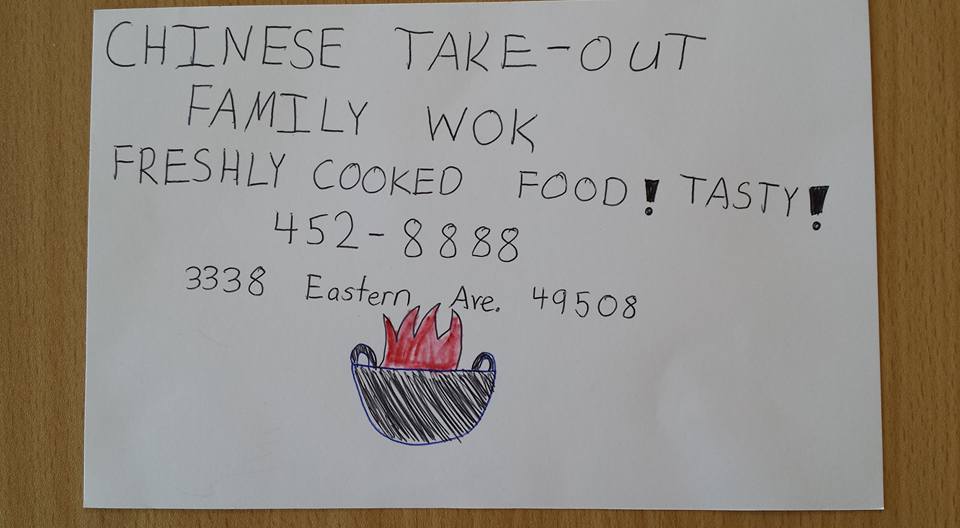 CHINESE TAKE-OUT
FAMILY WOK
FRESHLY COOKED FOOD! TASTY!
452-8888
3338 Eastern Ave. 49508